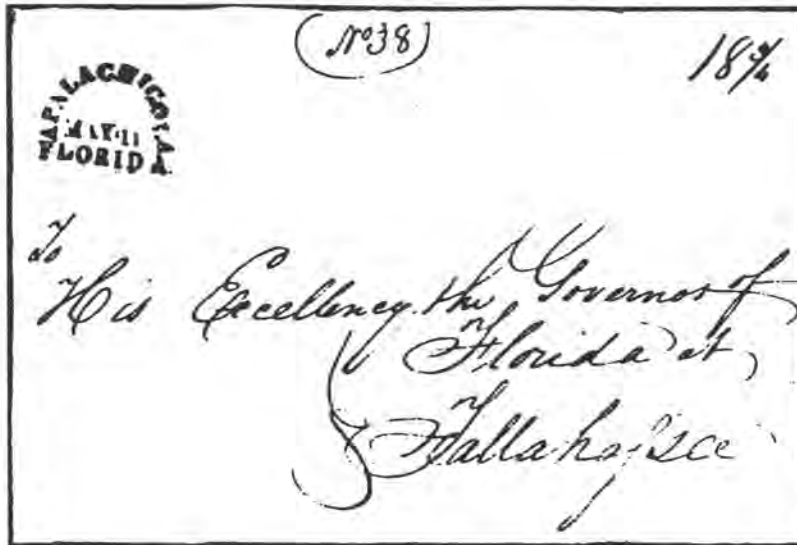 (No 38)
18 3/4
APALACHICOLA
MAY·11
FLORIDA
To
His Excellency the Governor of
Florida at
Tallahassee